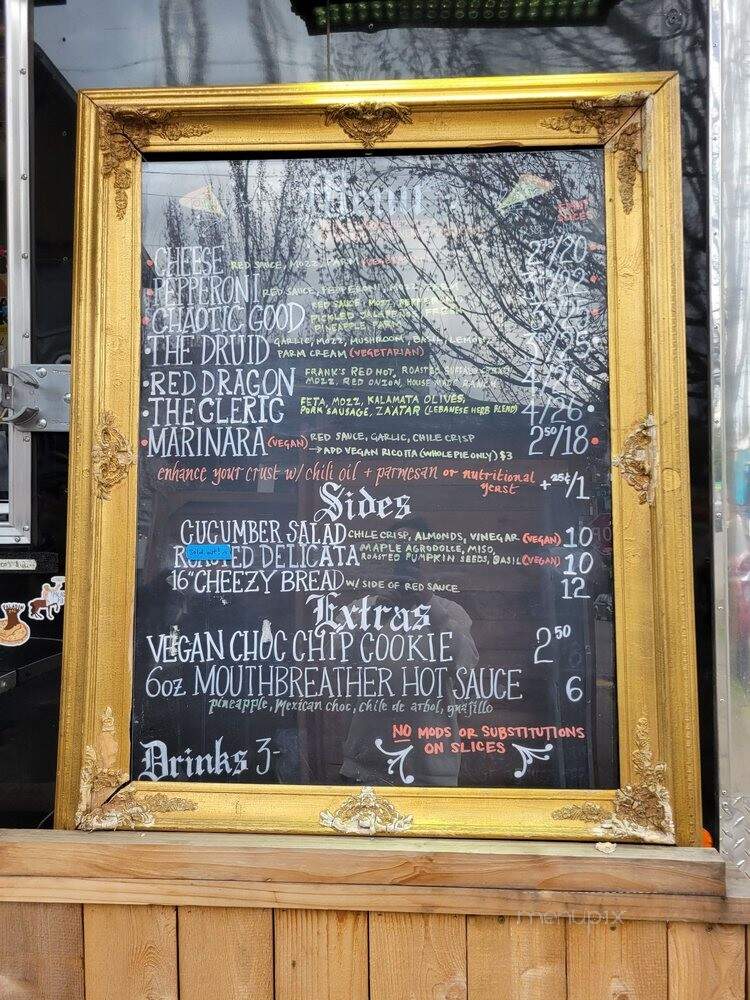 Menu
CHEESE RED SAUCE, MOZZ, PARM 2⁷⁵/20
PEPPERONI RED SAUCE, PEPPERONI, MOZZ /22
CHAOTIC GOOD RED SAUCE, MOZZ, PEPPERONI
PICKLED JALAPEÑOS, FRESH
PINEAPPLE, PARM
THE DRUID GARLIC, MOZZ, MUSHROOM, BASIL, LEMON
PARM CREAM (VEGETARIAN)
RED DRAGON FRANK'S RED HOT, ROASTED
MOZZ, RED ONION, HOUSE MADE RANCH 4/26
THE CLERIC FETA, MOZZ, KALAMATA OLIVES,
PORK SAUSAGE, ZAATAR (LEBANESE HERB BLEND) 4/26
MARINARA (VEGAN) RED SAUCE, GARLIC, CHILE CRISP 2⁵⁰/18
→ADD VEGAN RICOTTA (WHOLE PIE ONLY) $3
enhance your crust w/ chili oil + parmesan or nutritional
yeast +²⁵¢/1
Sides
CUCUMBER SALAD CHILE CRISP, ALMONDS, VINEGAR (VEGAN) 10
Sold out!
ROASTED DELICATA MAPLE AGRODOLCE, MISO,
ROASTED PUMPKIN SEEDS, BASIL (VEGAN) 10
16" CHEEZY BREAD W/ SIDE OF RED SAUCE 12
Extras
VEGAN CHOC CHIP COOKIE 2⁵⁰
6oz MOUTHBREATHER HOT SAUCE 6
pineapple, Mexican choc, chile de arbol, guajillo
NO MODS OR SUBSTITUTIONS
ON SLICES
Drinks 3-
menupix